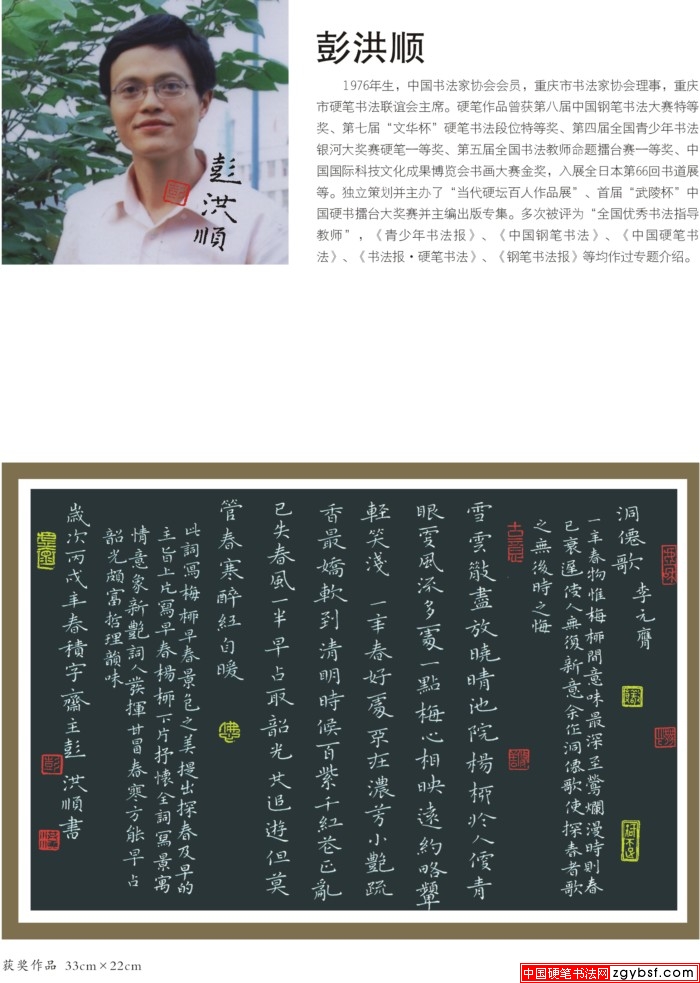 彭洪順
彭洪顺
1976年生，中国书法家协会会员，重庆市书法家协会理事，重庆
市硬笔书法联谊会主席。硬笔作品曾获第八届中国钢笔书法大赛特等
奖、第七届“文华杯”硬笔书法段位特等奖、第四届全国青少年书法
银河大奖赛硬笔一等奖、第五届全国书法教师命题擂台赛一等奖、中
国国际科技文化成果博览会书画大赛金奖，入展全日本第66回书道展
等。独立策划并主办了“当代硬坛百人作品展”、首届“武陵杯”中
国硬书擂台大奖赛并主编出版专集。多次被评为“全国优秀书法指导
教师”，《青少年书法报》、《中国钢笔书法》、《中国硬笔书
法》、《书法报·硬笔书法》、《钢笔书法报》等均作过专题介绍。
洞僊歌
李元膺
一年春物惟梅柳間意味最深至鶯爛漫時則春
已衰遲使人無復新意余作洞僊歌使探春者歌
之無後時之悔
雪雲散盡放曉晴池院楊柳於人便青
眼更風流多處一點梅心相映遠約略顰
輕笑淺 一年春好處不在濃芳小艷疏
香最嬌軟到清明時候百紫千紅花正亂
已失春風一半早占取韶光共追遊但莫
管春寒醉紅自暖
此詞寫梅柳早春景色之美提出探春及早的
主旨上片寫早春楊柳下片抒懷全詞寫景寓
情意象新艷詞人發揮甘冒春寒方能早占
韶光頗富哲理韻味
歲次丙戌年春積字齋主彭洪順書
获奖作品 33cm×22cm
中国硬笔书法网 zgybsf.com